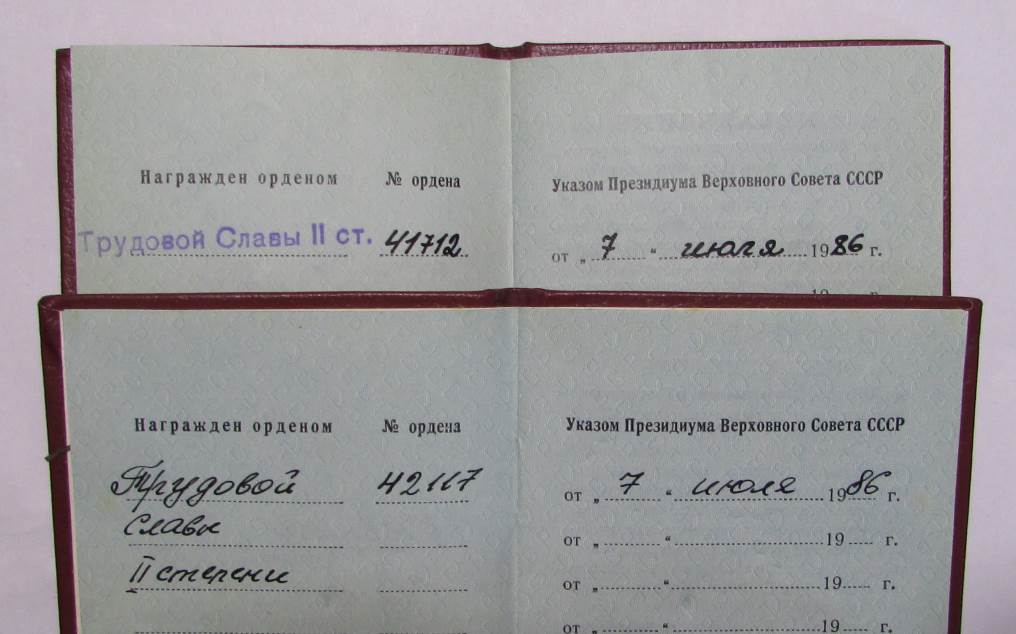 Награжден орденом № ордена Указом Президиума Верховного Совета СССР
Трудовой Славы II ст. 41712 от „ 7 “ июля 1986 г.
19 г.
Награжден орденом № ордена Указом Президиума Верховного Совета СССР
Трудовой 42117 от „ 7 “ июля 1986 г.
Славы от „ “ 19 г.
II степени от „ “ 19 г.
от „ “ 19 г.